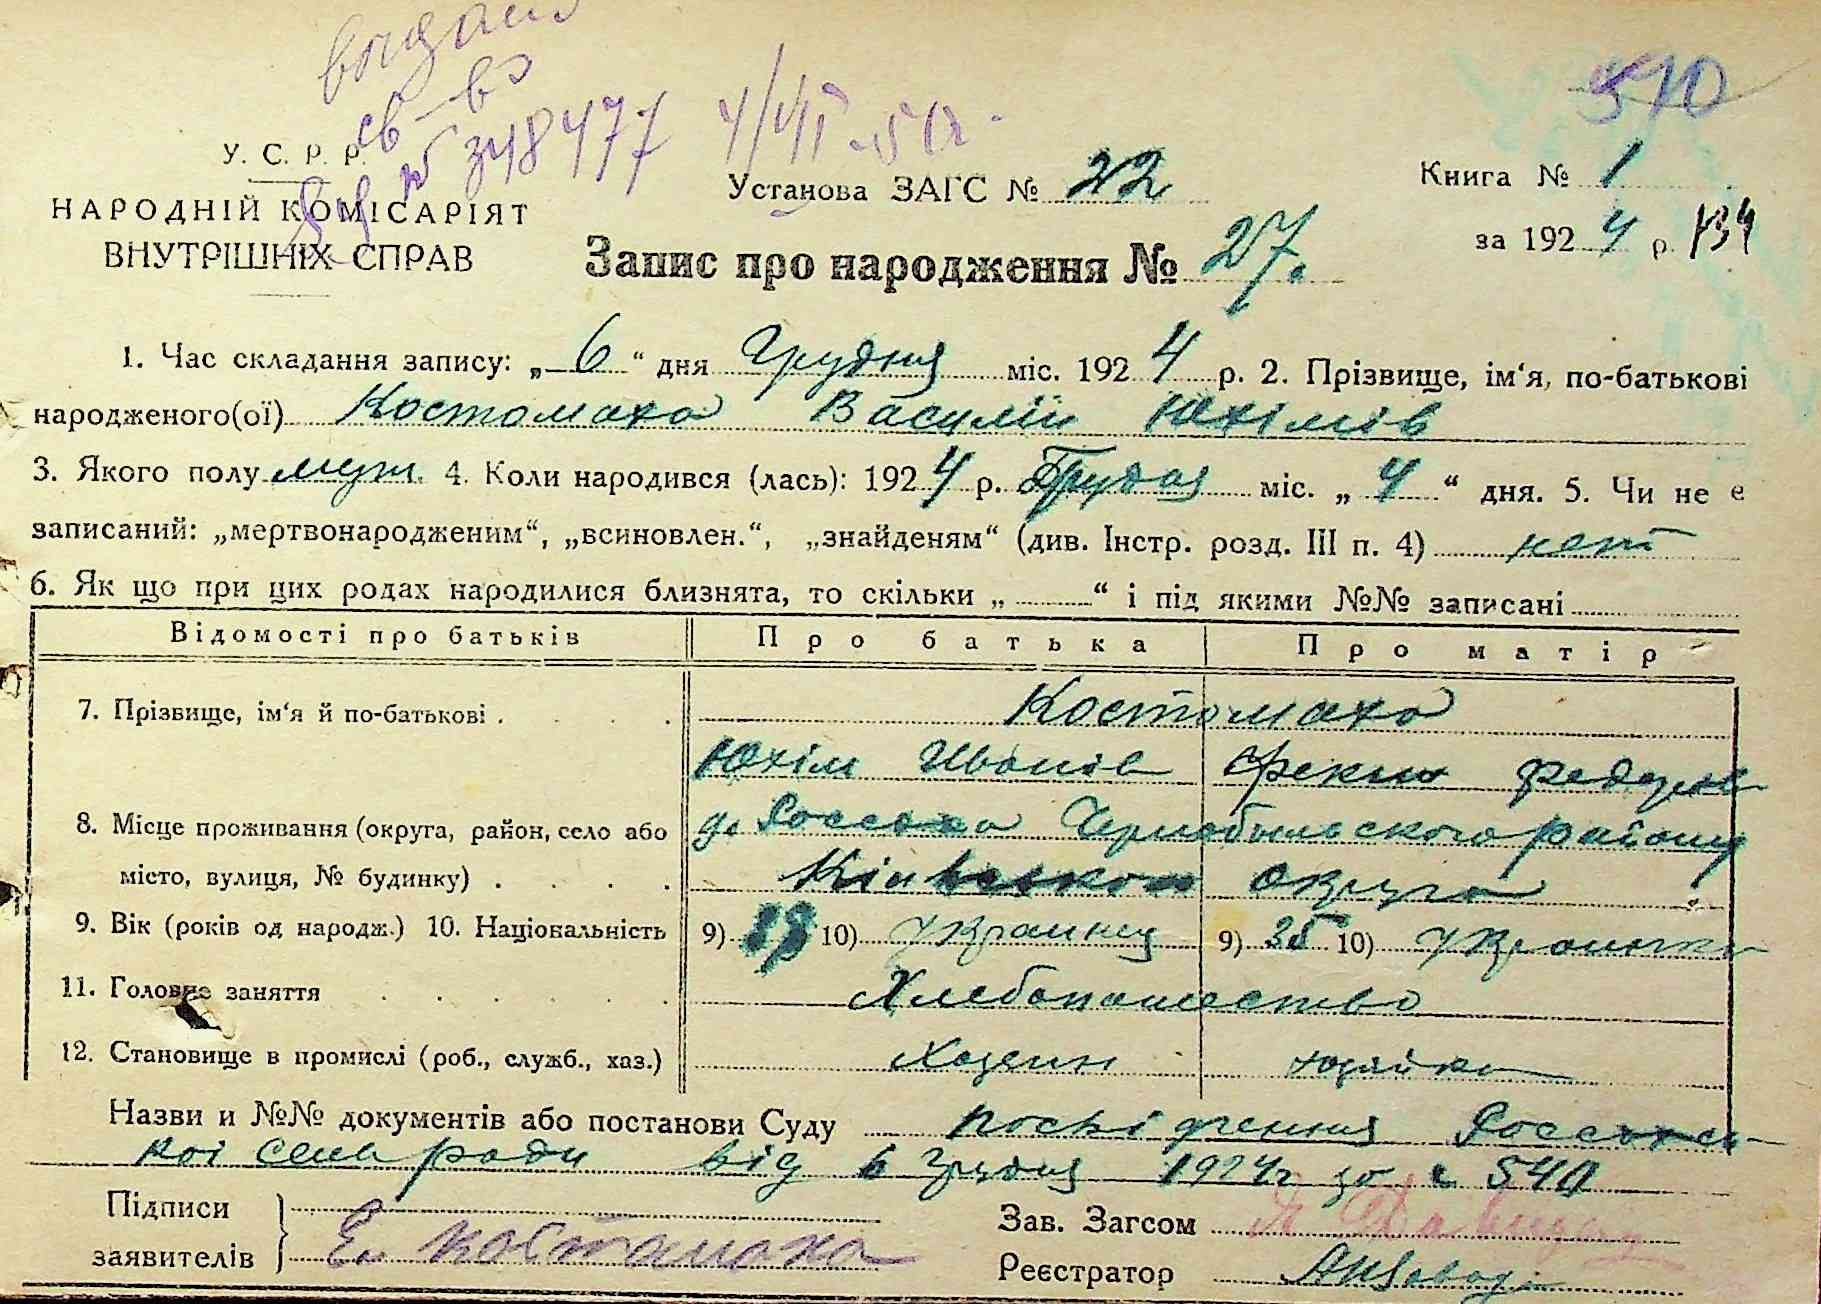 видано
св-во
№ 348477 4/VII-50г.
510
У. С. Р. Р.
НАРОДНІЙ КОМІСАРІЯТ
ВНУТРІШНІХ СПРАВ
Установа ЗАГС № 22
Книга № 1
за 1924 р. 134
Запис про народження № 27.
1. Час складання запису: „ 6 “ дня Грудня міс. 1924 р. 2. Прізвище, ім‘я, по-батькові
народженого(ої) Костомаха Василій Юхімів
3. Якого полу муж. 4. Коли народився (лась): 1924 р. Грудня міс. „ 4 “ дня. 5. Чи не є
записаний: „мертвонародженим“, „всиновлен.“, „знайденям“ (див. Інстр. розд. III п. 4) нет
6. Як що при цих родах народилися близнята, то скільки „ “ і під якими №№ записані
Відомості про батьків Про батька Про матір
7. Прізвище, ім‘я й по-батькові Костомаха
Юхім Иванів
8. Місце проживання (округа, район, село або Россоха Чернобыльского району
місто, вулиця, № будинку) округа
9. Вік (років од народж.) 10. Національність 9) 10) украинец 9) 35 10) украинка
11. Головне заняття Хлебопашество
12. Становище в промислі (роб., служб., хаз.) Хозеин хозяйка
Назви и №№ документів або постанови Суду посвідчення
кої сель ради від 6 Грудня 1924г за № 540
Підписи
заявителів Костомаха
Зав. Загсом
Реєстратор